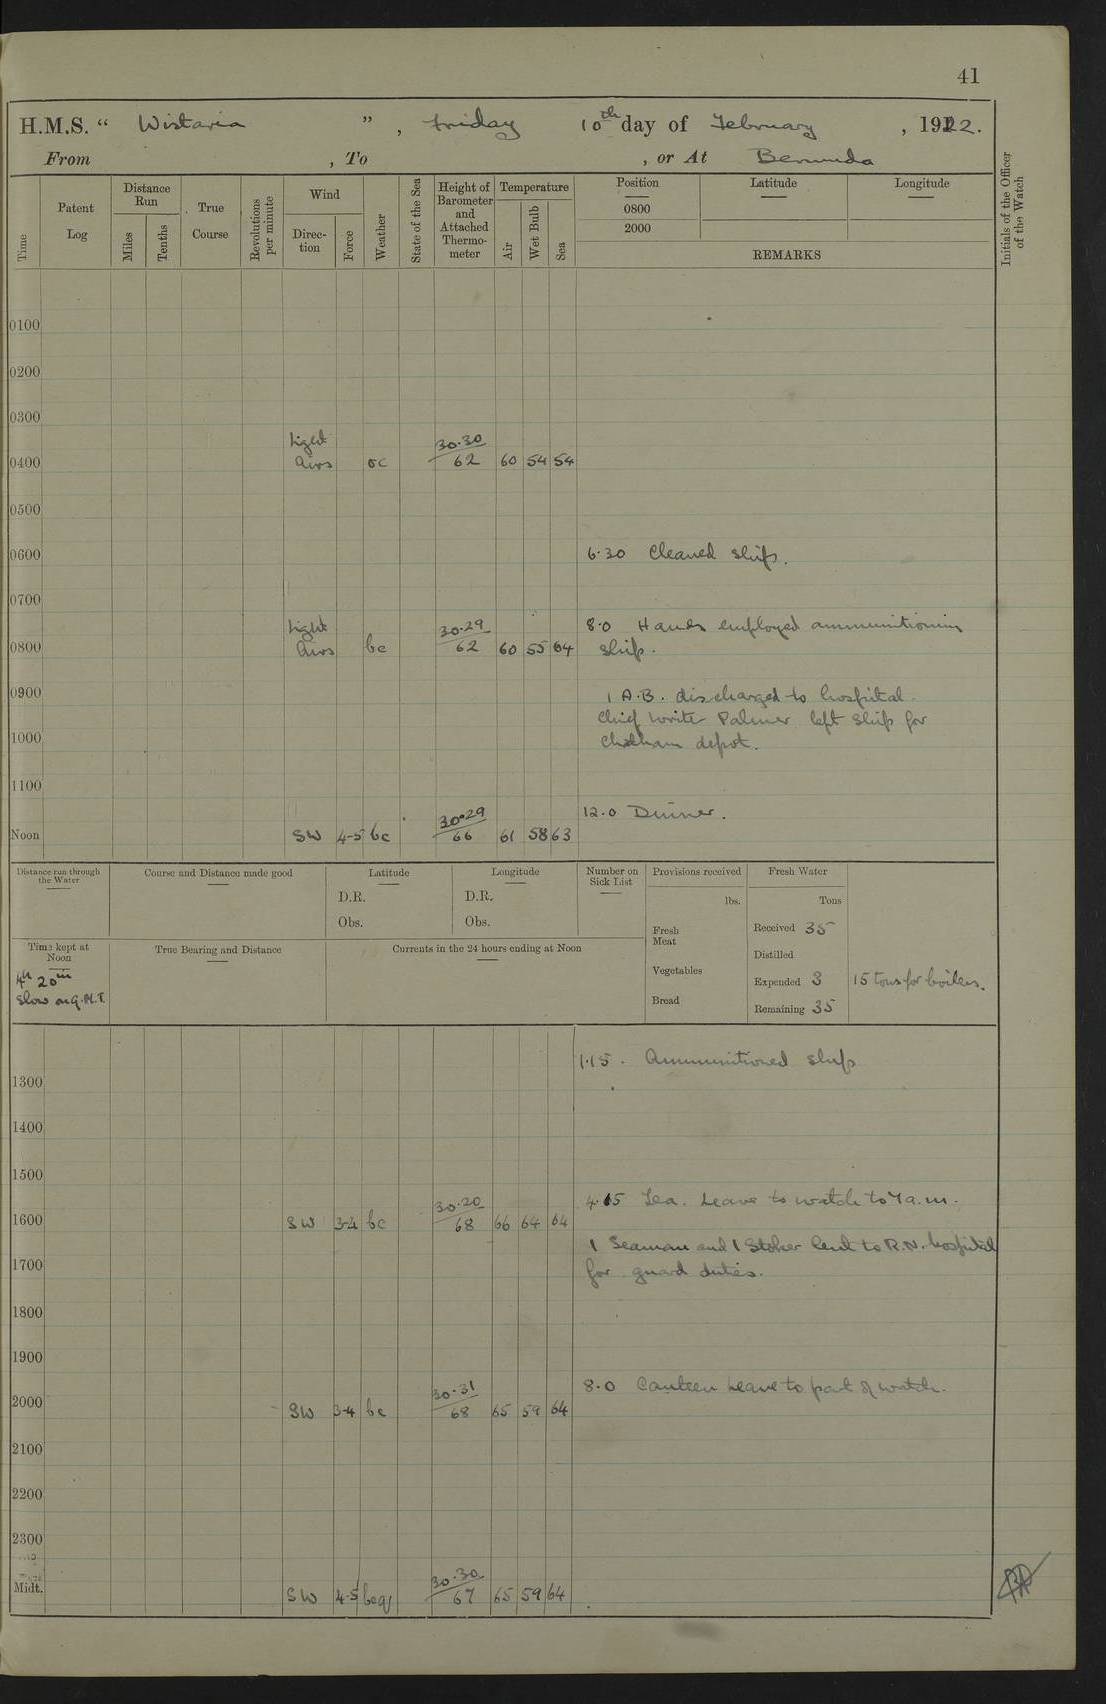 41
H.M.S. "Wistaria", Friday 10th day of February, 1922.
From , To , or At Bermuda
Time
Patent Log
Distance Run
Miles
Tenths
True Course
Revolutions per minute
Wind
Direction
Force
Weather
State of the Sea
Height of Barometer and Attached Thermometer
Temperature
Air
Wet Bulb
Sea
Position
0800
2000
Latitude
Longitude
REMARKS
Initials of the Officer of the Watch
0100
0200
0300
Light 30.30
0400 Airs oc 62 60 54 54
0500
0600 6.30 Cleaned ship.
0700
Light 30.29 8.0 Hands employed ammunitioning
0800 Airs bc 62 60 55 64 ship.
0900 1 A.B. discharged to hospital.
Chief Writer Palmer left ship for
1000 Chatham depot.
1100
30.29 12.0 Dinner.
Noon SW 4-5 bc 66 61 58 63
Distance run through the Water
Course and Distance made good
Latitude
D.R.
Obs.
Longitude
D.R.
Obs.
Number on Sick List
Provisions received
lbs.
Fresh Meat
Vegetables
Bread
Fresh Water
Tons
Received 35
Distilled
Expended 3 15 tons for boilers.
Remaining 35
Time kept at Noon
4h 20m
Slow on G.M.T.
True Bearing and Distance
Currents in the 24 hours ending at Noon
1.15. Ammunitioned ship
1300
1400
1500
30.20 4.15 Tea. Leave to watch to 7 a.m.
1600 SW 3-4 bc 68 66 64 64
1 Seaman and 1 Stoker lent to R.N. hospital
1700 for guard duties.
1800
1900
30.31 8.0 Canteen leave to part of watch.
2000 SW 3-4 bc 68 65 59 64
2100
2200
2300
30.30
Midt. SW 4-5 bcq 67 65 59 64